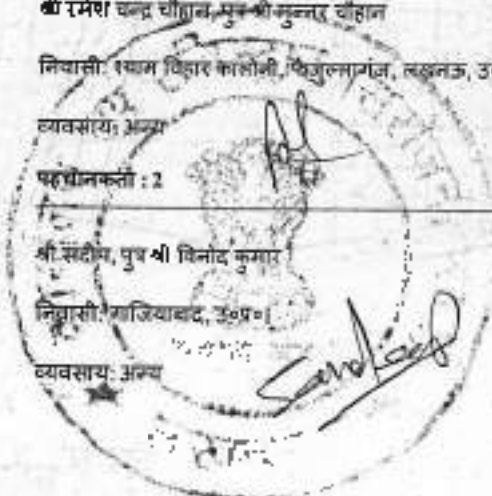 श्री रमेश चन्द्र चौहान, पुत्र श्री मुन्नर चौहान
निवासी: श्याम विहार कालोनी, फैजुल्लागंज, लखनऊ, उ
व्यवसाय: अन्य
पहचानकर्ता : 2
श्री संदीप, पुत्र श्री विनोद कुमार
निवासी: गाजियाबाद, उ०प्र०
व्यवसाय: अन्य
Sandeep